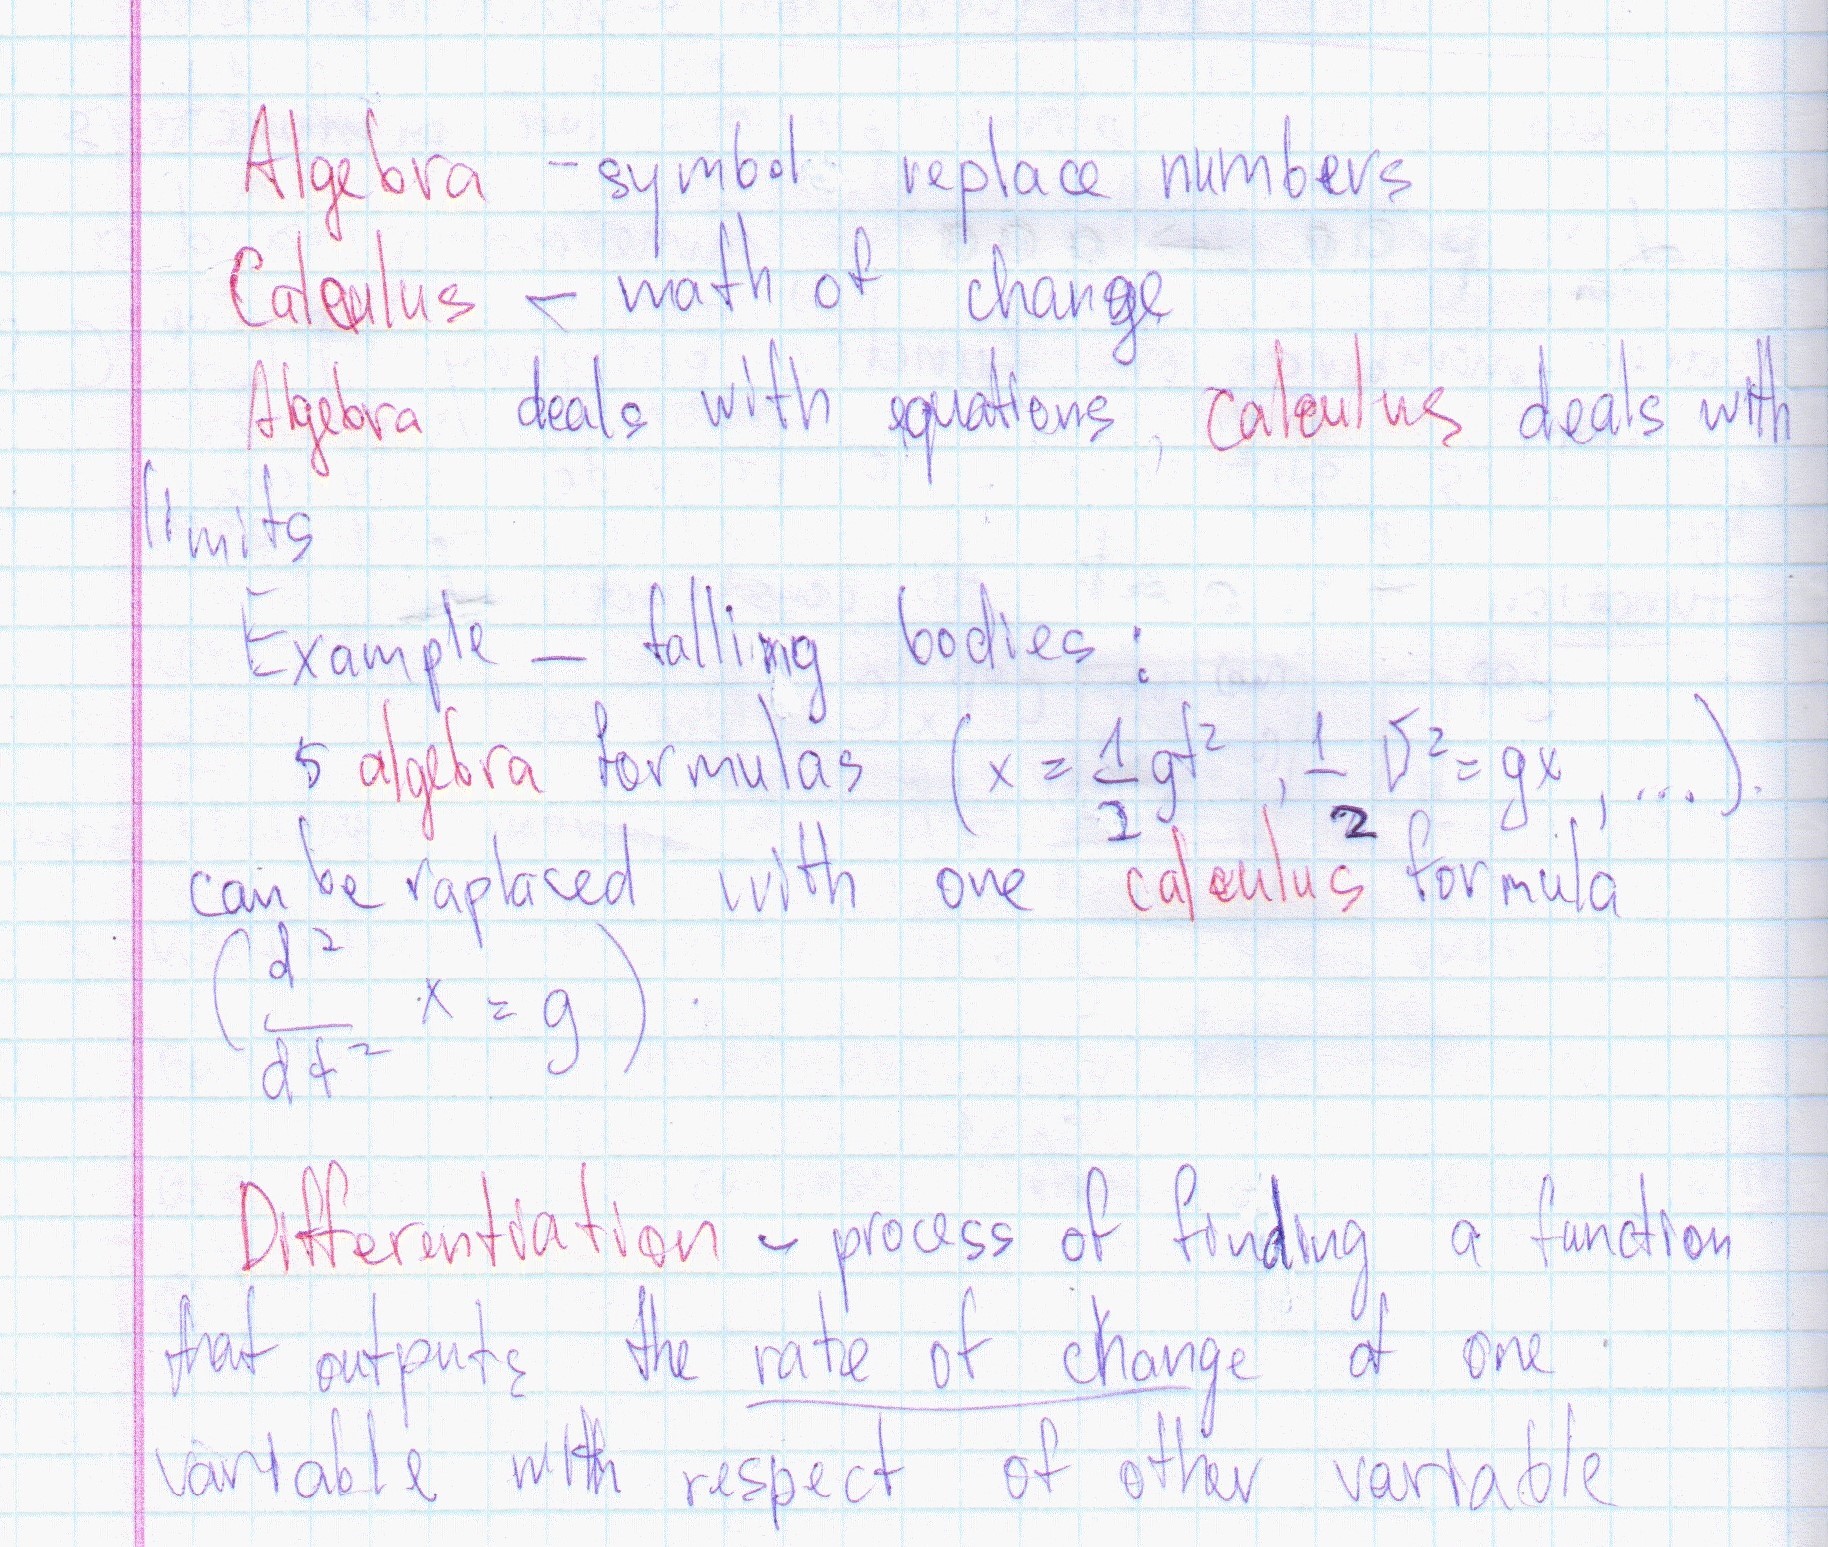 Algebra - symbol replace numbers
Calculus - math of change
Algebra deals with equations, calculus deals with
limits
Example - falling bodies:
5 algebra formulas (x = 1/2 gt², 1/2 v² = gx, ....).
can be raplased with one calculus formula
(d²/dt² x = g).
Differentiation - process of finding a function
that outputs the rate of change of one
variable with respect of other variable